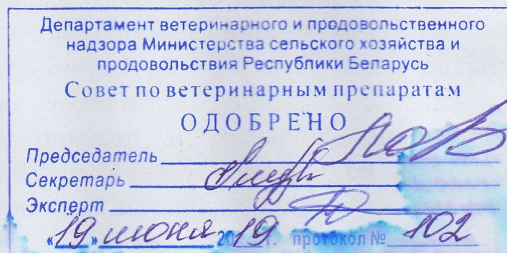 Департамент ветеринарного и продовольственного
надзора Министерства сельского хозяйства и
продовольствия Республики Беларусь
Совет по ветеринарным препаратам
ОДОБРЕНО
Председатель
Секретарь
Эксперт
«19» июня 2019 г. протокол № 102